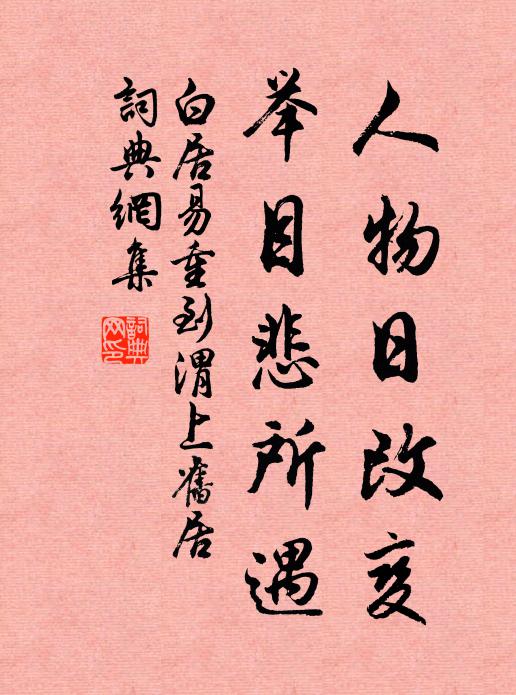 人物日改变
举目悲所遇
白居易重到渭上舊居
詞典網集
詞典网印